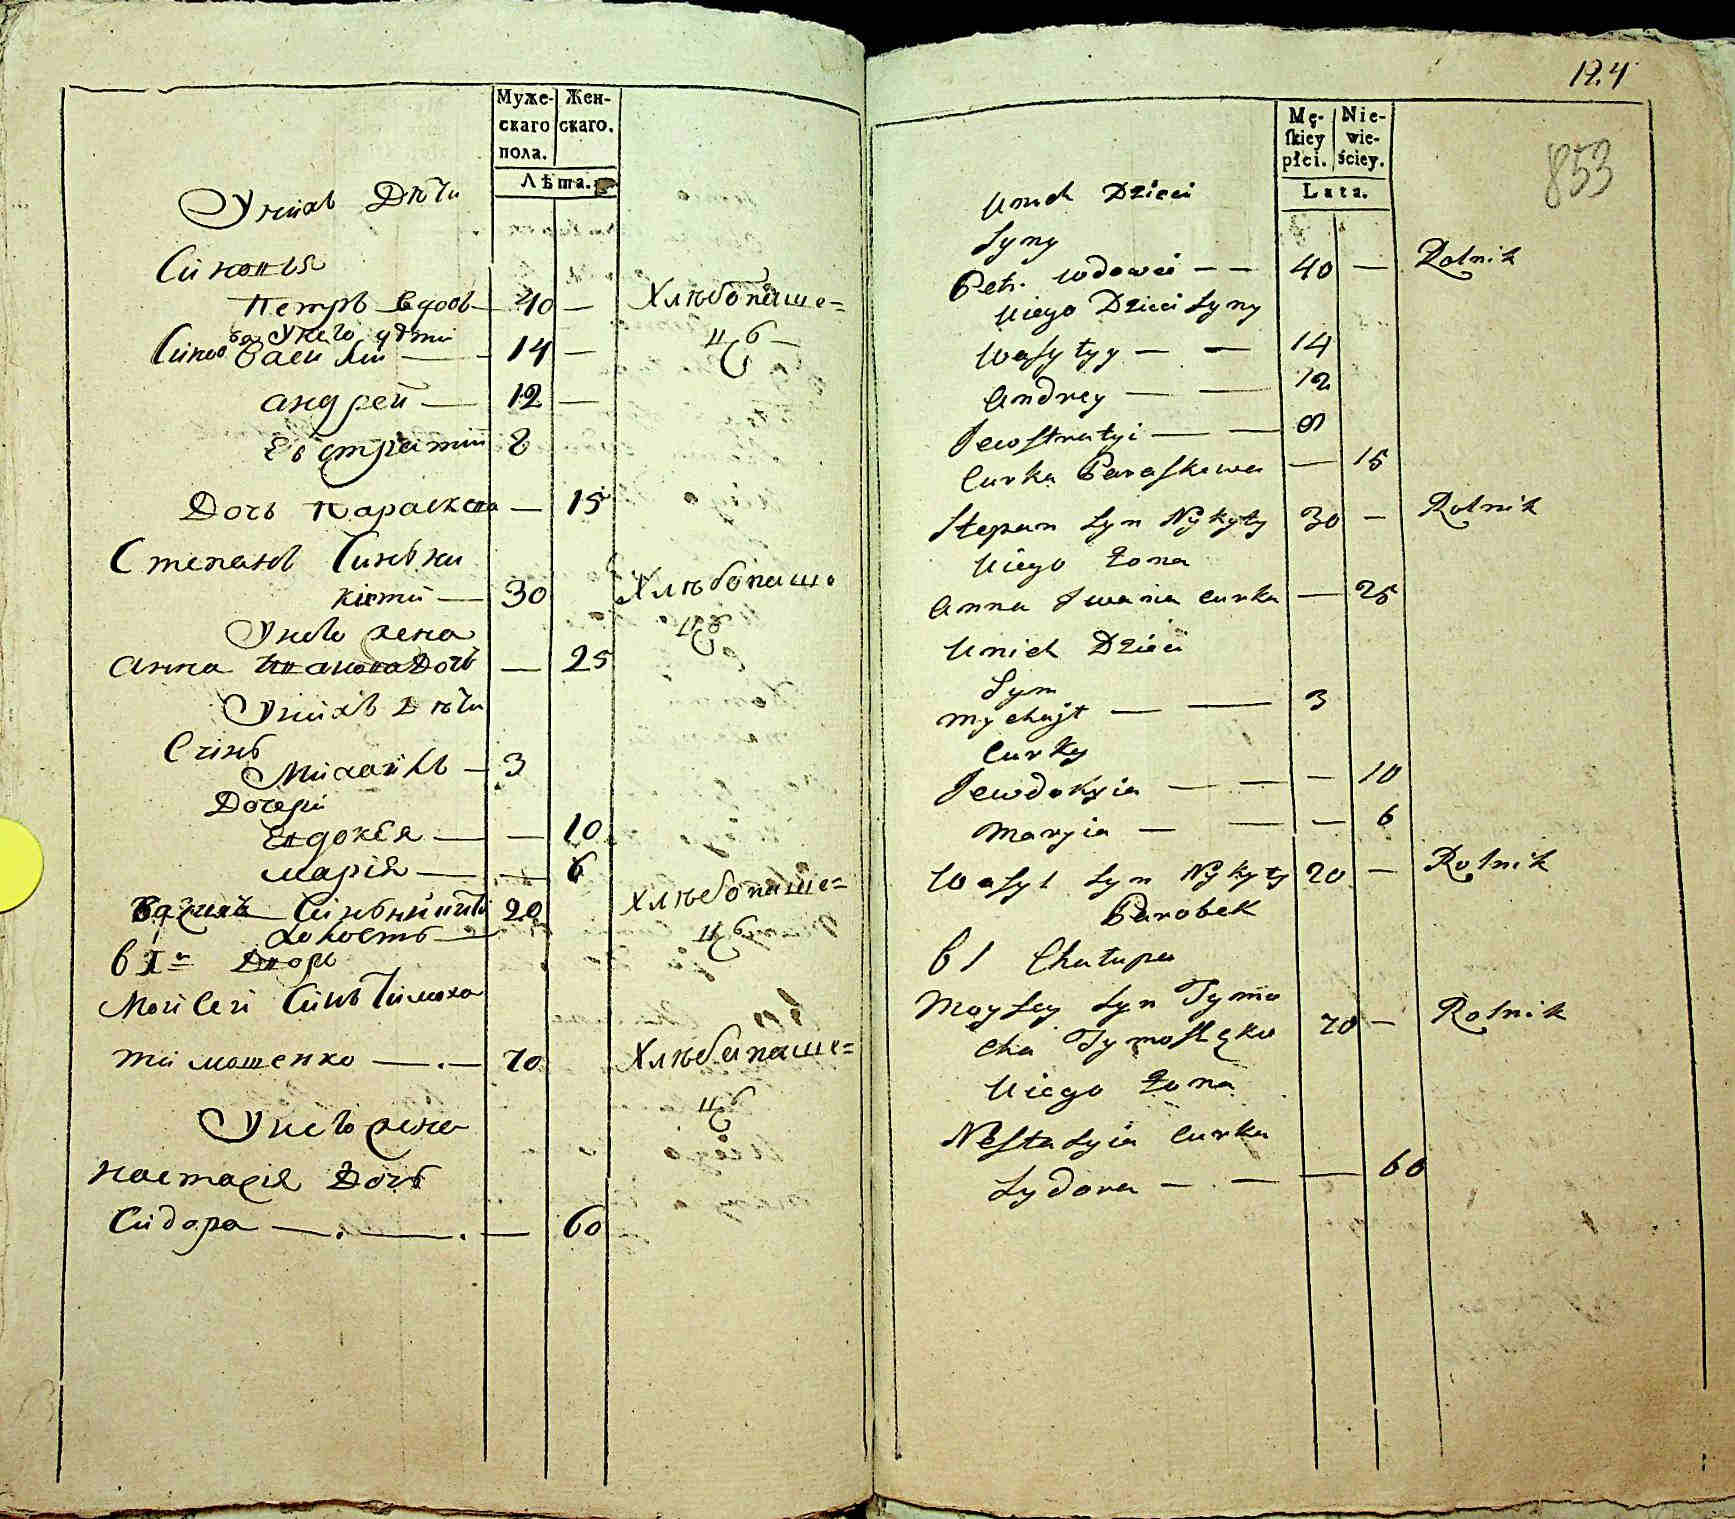 Муже- Жен-
скаго скаго.
пола.
Лѣта.
Унихъ Дѣти
Синовья
Петръ вдовъ — 40 — Хлѣбопаше=
Синов Унего
Васи лий — 14 — цъ
андрей — 12 —
Евстратий 8
Дочь Параскева — 15
Степанъ Синъ ни
китий — 30 Хлѣбопаше
Унего жена цъ
анна Іванова Дочь — 25
Унихъ Дѣти
Синъ
Михайлъ — 3
Дочери
Евдокея — — 10
мария — — 6
Василь Синъ 20 Хлѣбопаше=
холостъ — цъ
в 1м Дворъ
Мойсей Синъ Тимоха
тимошенко — . — 70 Хлѣбопаше=
цъ
Унего жена
настасия Дочь
Сидора — . — . — 60
124
853
Mę- Nie-
skiey wie-
płci. ściey.
Lata.
Unich Dzieci
Syny
Petr. wdowei — — 40 — Rolnik
Uiego Dzieci Syny
Wasyłyy — — 14
Andrey — — 12
Jewstratyi — — 8
Curka Paraskewa — 15
Stepan Syn Nykyty 30 — Rolnik
Uiego Żona
Anna Iwana curka — 25
Unich Dzieci
Syn
Mychajł — — 3
Curky
Jewdokyia — — — 10
Maryia — — — 6
Wasyl Syn Nykyty 20 — Rolnik
Parobek
b 1 Chałupa
Moysey Syn Tymo
cha Tymosz̨ko 70 — Rolnik
Uiego Żona
Nestasyia curka
Sydora — — — 60